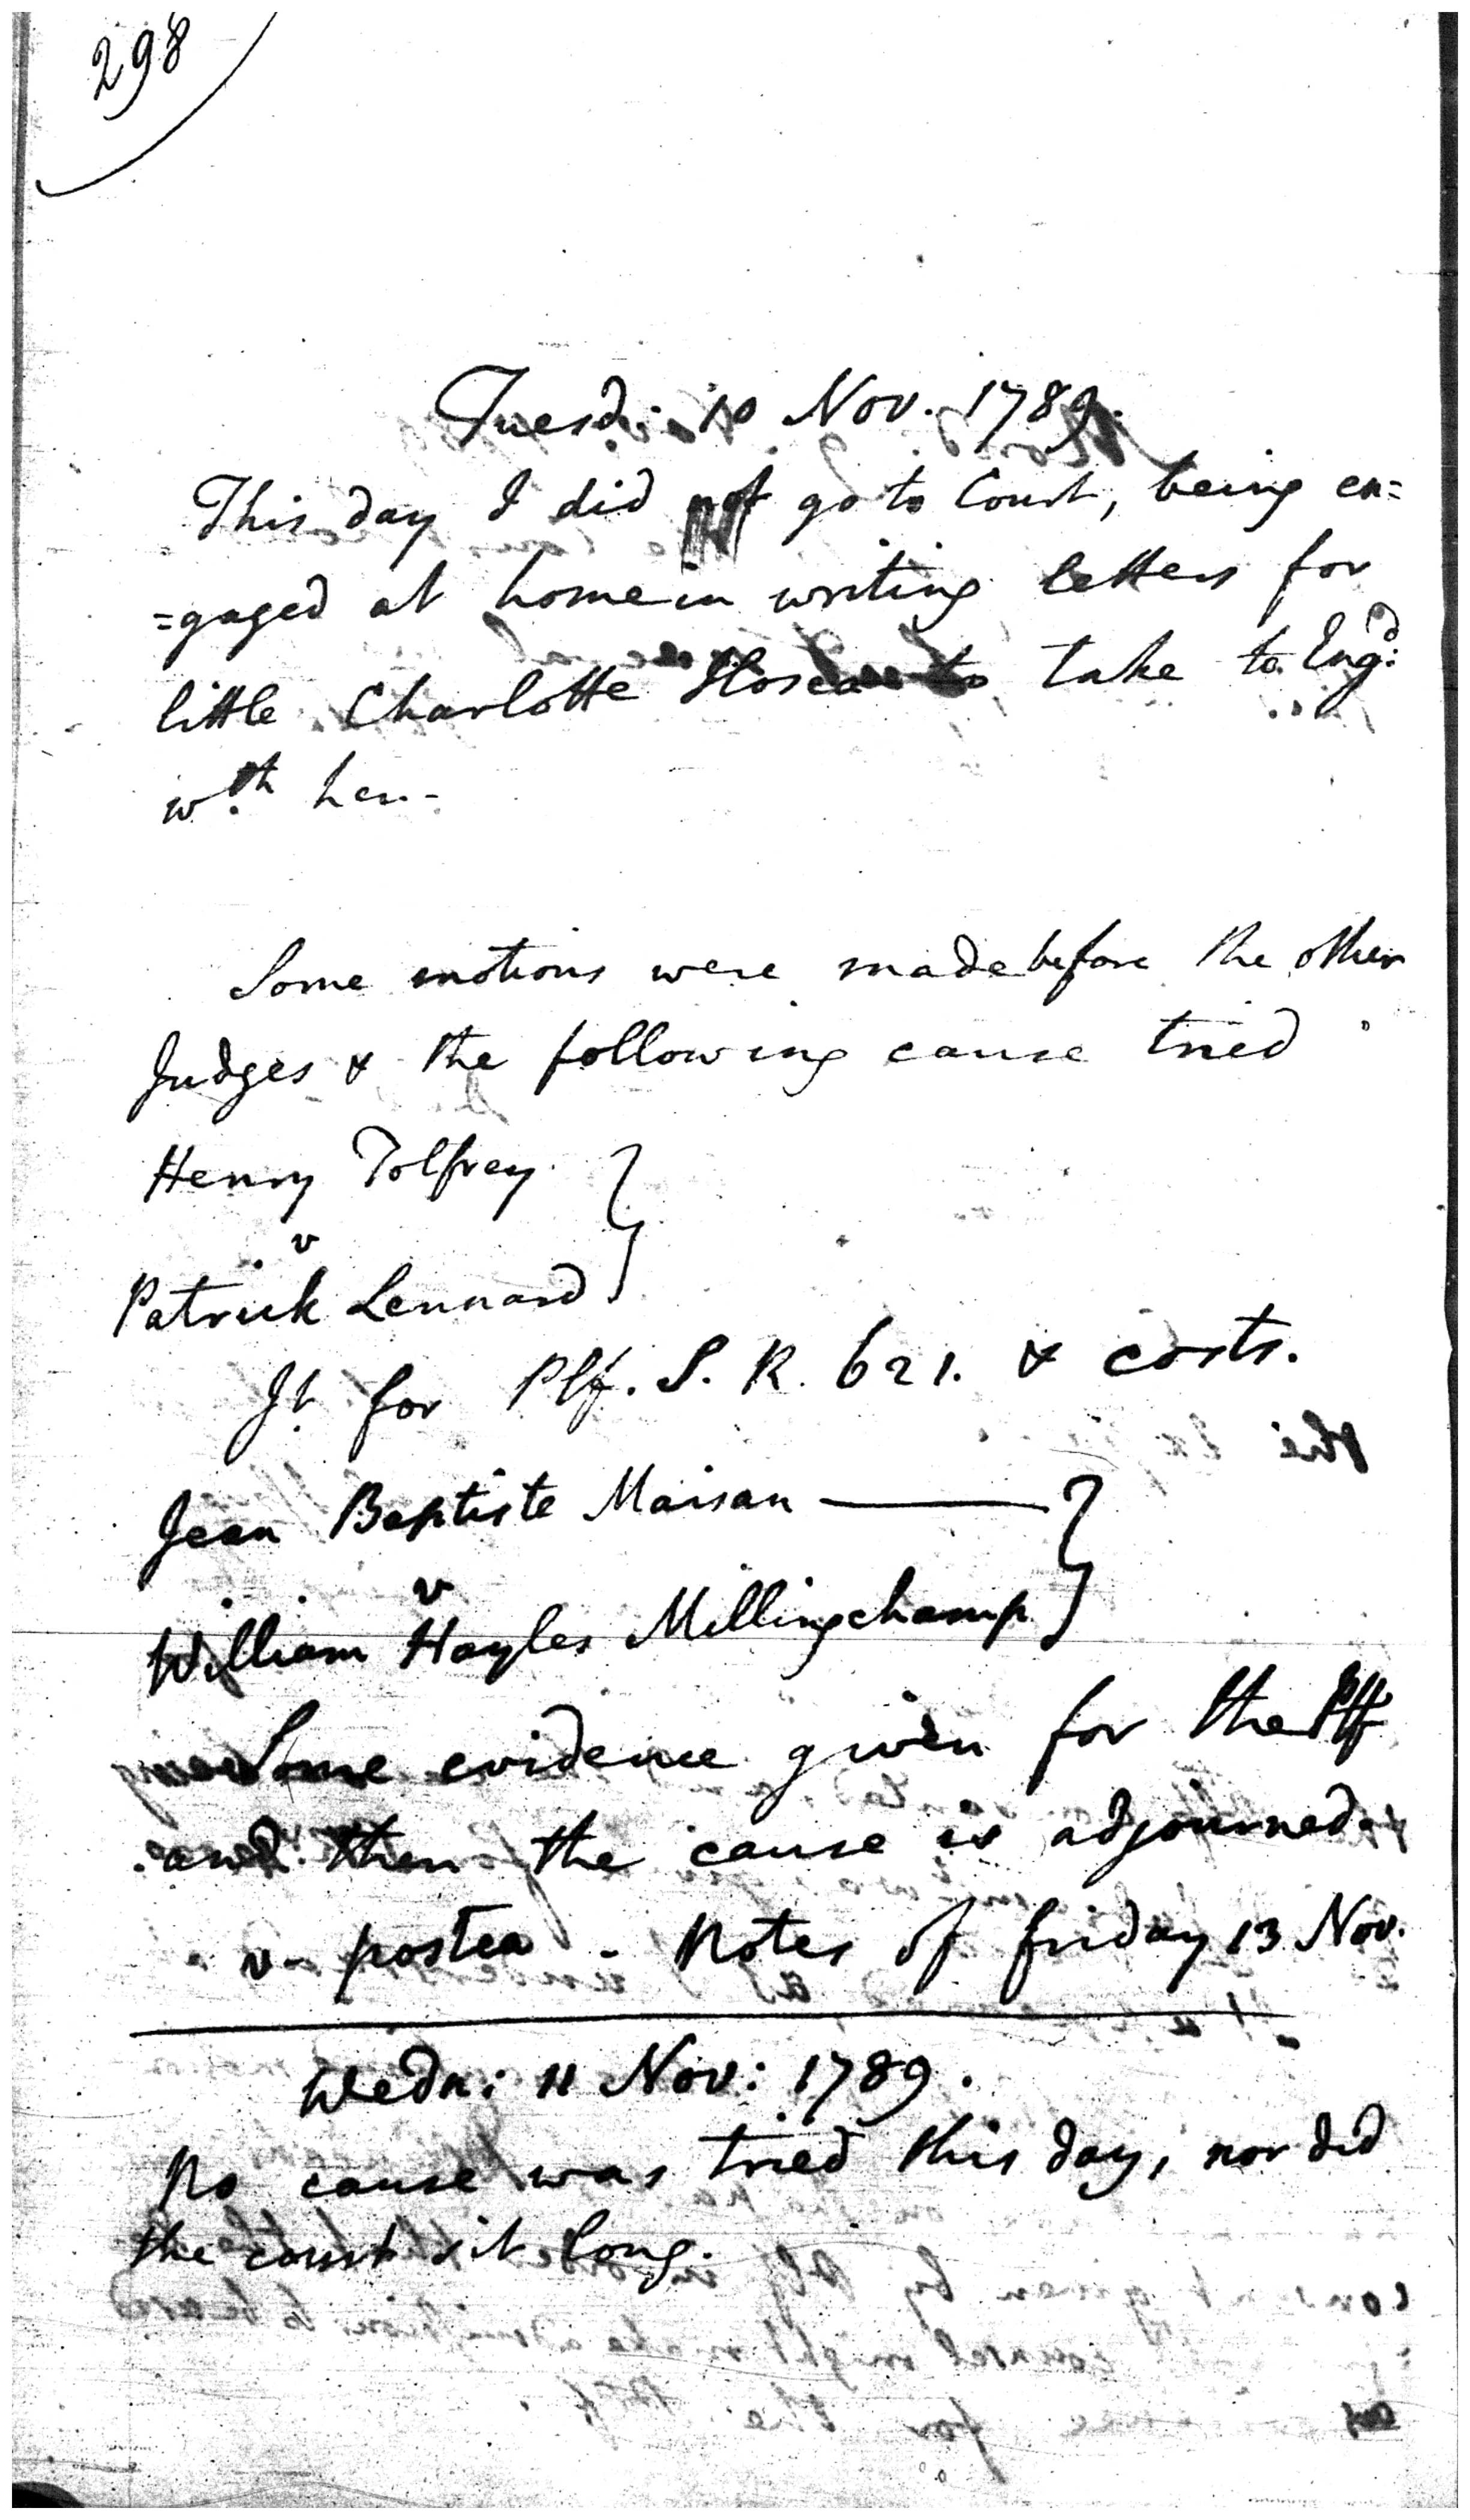 298
Tuesd: 10 Nov. 1789.
This day I did not go to Court, being en=
=gaged at home in writing letters for
little Charlotte to take to Eng:d
w:th her.
Some motions were made before the other
Judges & the following cause tried
Henry Tolfrey
v
Patrick Lennard
Jt for Plf. S. R. 621. & costs.
Jean Baptiste Maisan
v
William Hayles Millingchamp
Some evidence given for the Plf
and then the cause is adjourned.
v. postea - Notes of friday 13 Nov.
Wedn: 11 Nov: 1789.
No cause was tried this day, nor did
the court sit long.